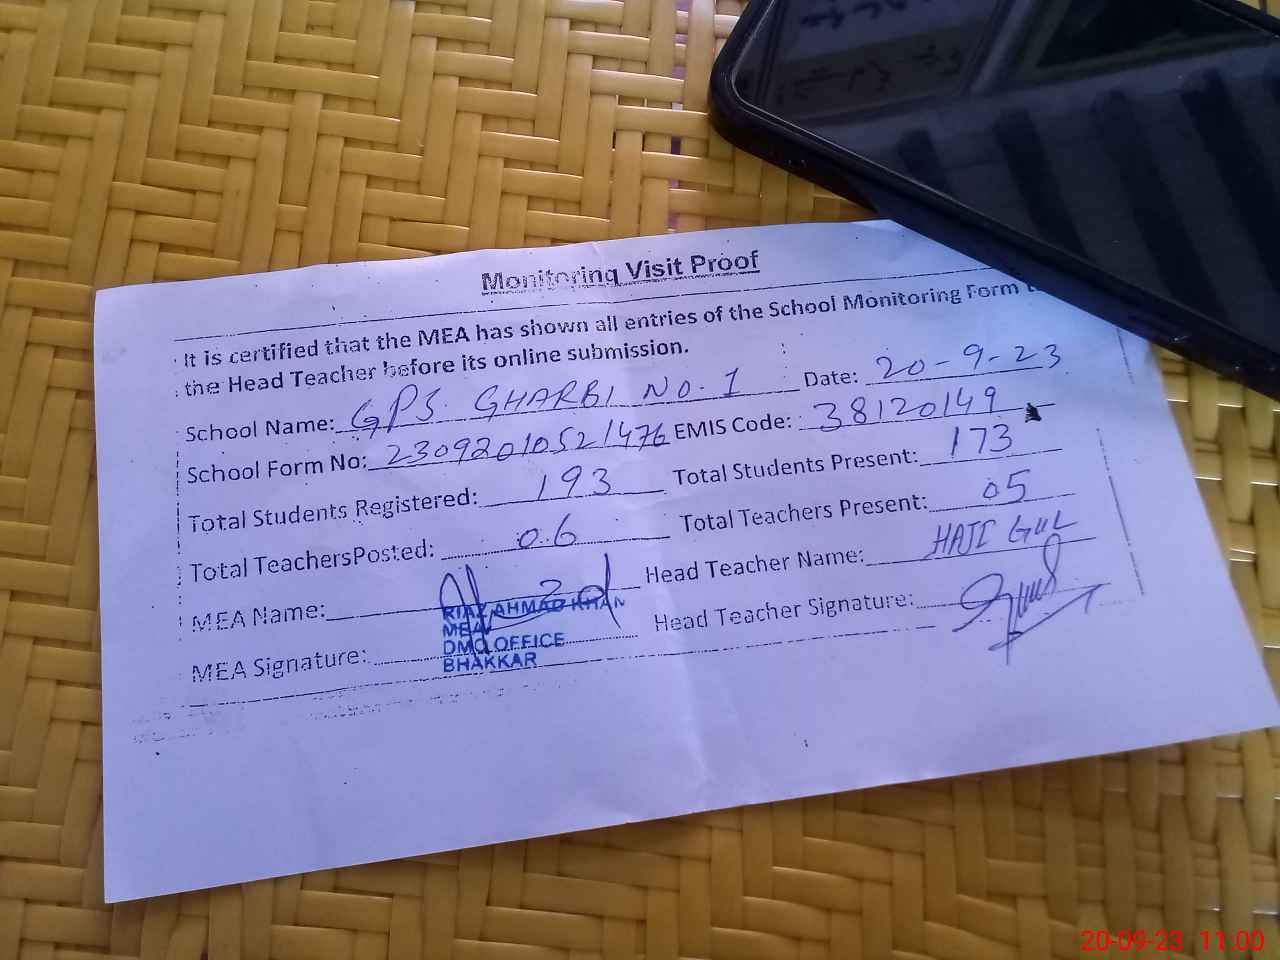 Monitoring Visit Proof
It is certified that the MEA has shown all entries of the School Monitoring Form
the Head Teacher before its online submission.
School Name: GPS GHARBI NO. 1 Date: 20-9-23
School Form No: 23092010521476 EMIS Code: 38120149
Total Students Registered: 193 Total Students Present: 173
Total TeachersPosted: 06 Total Teachers Present: 05
MEA Name: Head Teacher Name: HAJI GUL
RIAZ AHMAD KHAN
MEA
DMO OFFICE
BHAKKAR
MEA Signature: Head Teacher Signature:
20-09-23 11:00